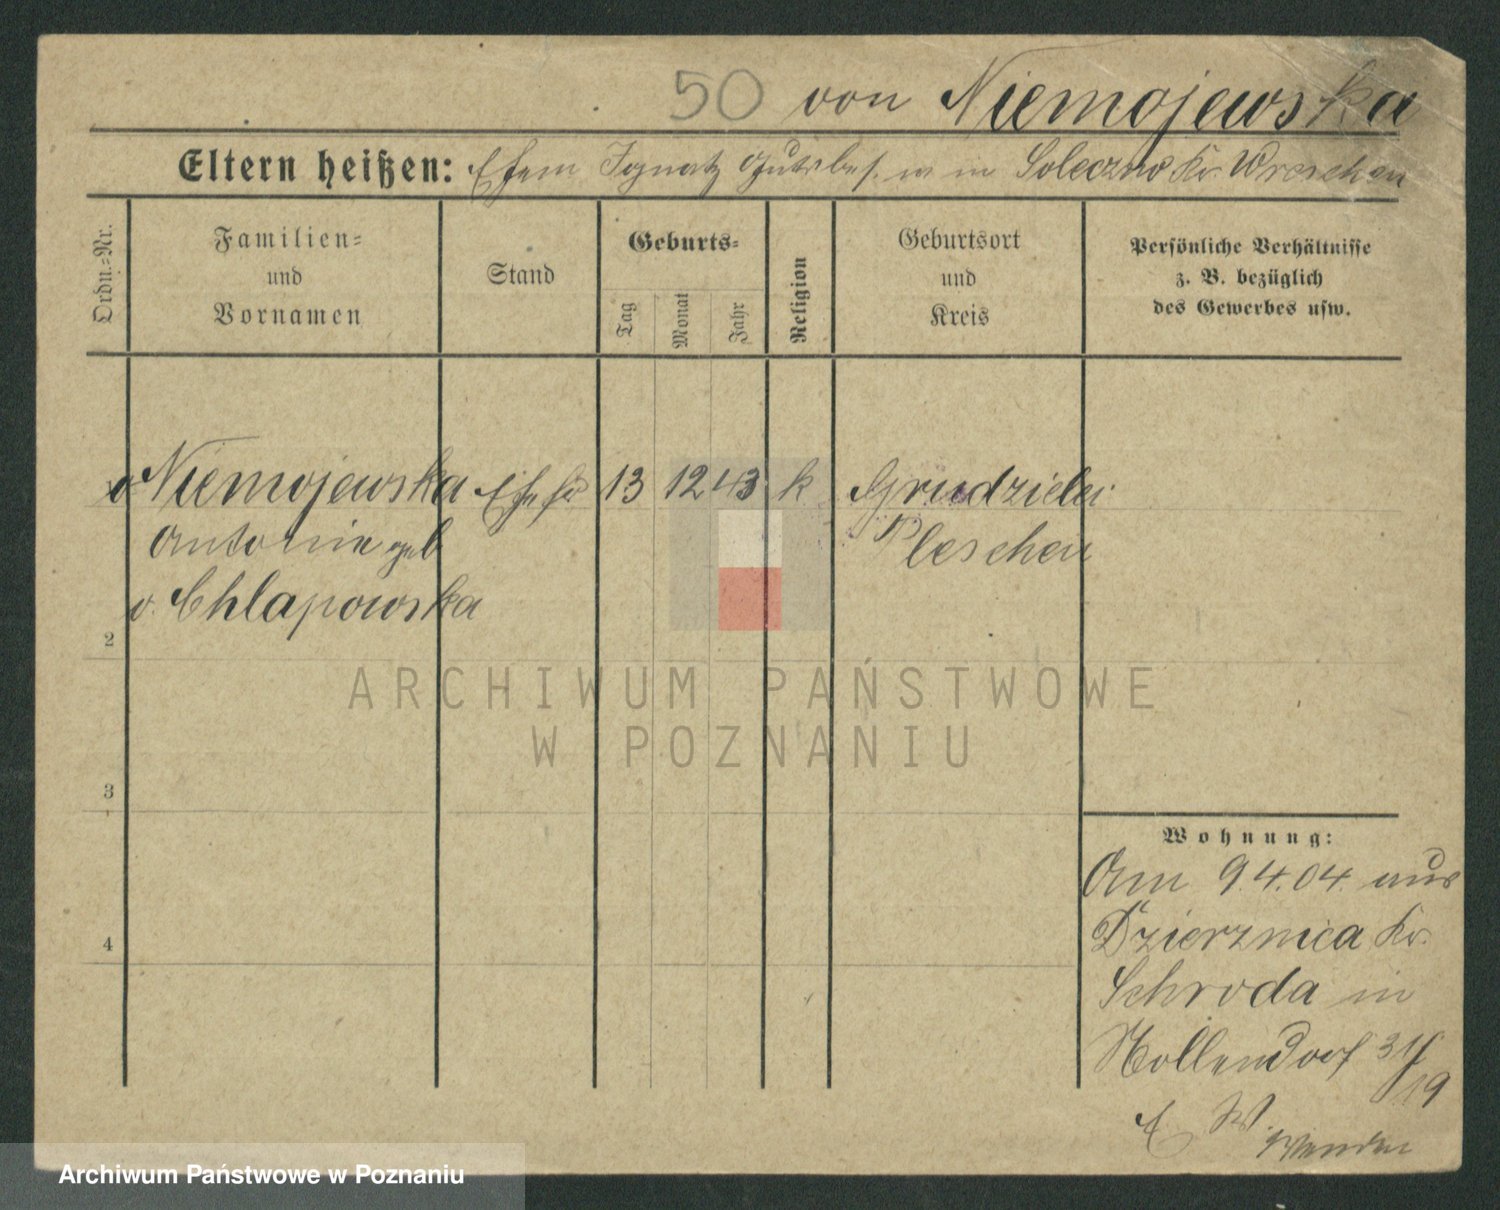 50 von Niemojewska
Eltern heißen: Ehem Ignatz Gutsbes. w in Soleczno Kr. Wreschen
Ordn.-Nr.
Familien-
und
Vornamen
Stand
Geburts-
Tag
Monat
Jahr
Religion
Geburtsort
und
Kreis
Persönliche Verhältnisse
z. B. bezüglich
des Gewerbes usw.
v Niemojewska Ehefr 13 12 43 k Grudzielei
Antonie geb Pleschen
v. Chlapowska
2
3
4
Wohnung:
Am 9.4.04. aus
Dzierznica Kr.
Schroda in
Hollendorf 31/
19
E W.
wenden
ARCHIWUM PAŃSTWOWE
W POZNANIU
Archiwum Państwowe w Poznaniu